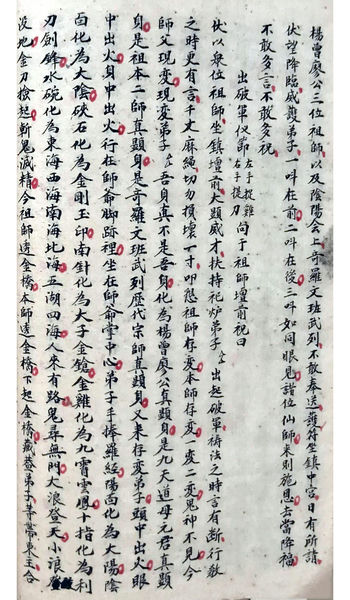 楊曾廖公三位祖師以及陰陽會上奇羅文班武列不敢奉送護符坐鎮中宮日有所請
伏望降臨威護弟子一叫在前二叫在後三叫如同眼見諸位仙師来則施恩去當降福
不敢多言不敢多祝
出破軍仪節 左手提雞右手提刀 向于祖師壇前祝曰
伏以眾位祖師坐鎮壇前大顕威才扶持祀炉弟子 出起破軍祷法之時言有断行敕
之時更有言千丈麻繩切勿損壞一寸叩恳祖師存変本師存変一变二变鬼神不見今
師父現変現変弟子 吾身真不是吾身化為楊曾廖公真顕身是九天道母元君真顕
身是祖本二師真顕身是奇羅文班武列歷代宗師真顕身又来存変弟子頭中出火眼
中出火身中出火行在師爺脚跡裡坐在師爺掌中心弟子手捧羅經陽面化為大陽陰
面化為大陰硤石化為金剛玉印南針化為大子金鎗金雞化為九霄雲鳳十指化為利
刀劍碎水碗化為東海西海南海北海五湖四海人來有路鬼尋無門大浪登天小浪
沒地金刀撿起斬鬼滅精今祖師造金橋本師造金橋下起金橋藏蓋弟子等帶東主合